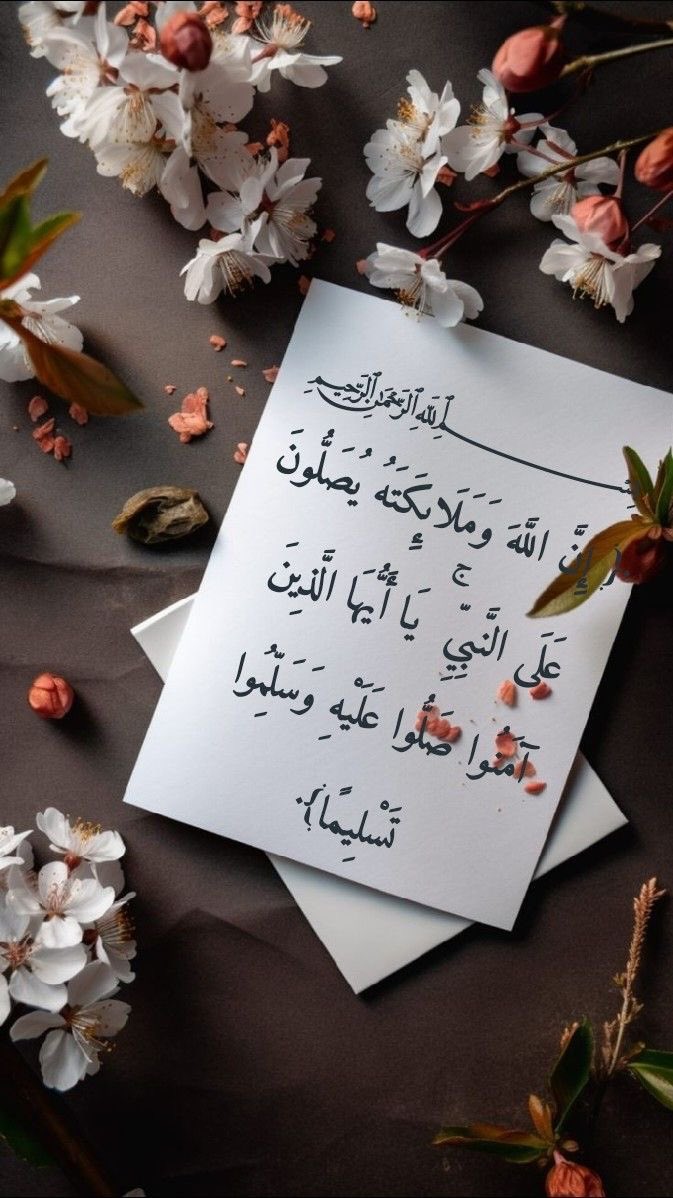 بِسْمِ اللَّهِ الرَّحْمَٰنِ الرَّحِيمِ
﴿ إِنَّ اللَّهَ وَمَلَائِكَتَهُ يُصَلُّونَ
عَلَى النَّبِيِّ ۚ يَا أَيُّهَا الَّذِينَ
آمَنُوا صَلُّوا عَلَيْهِ وَسَلِّمُوا
تَسْلِيمًا﴾.